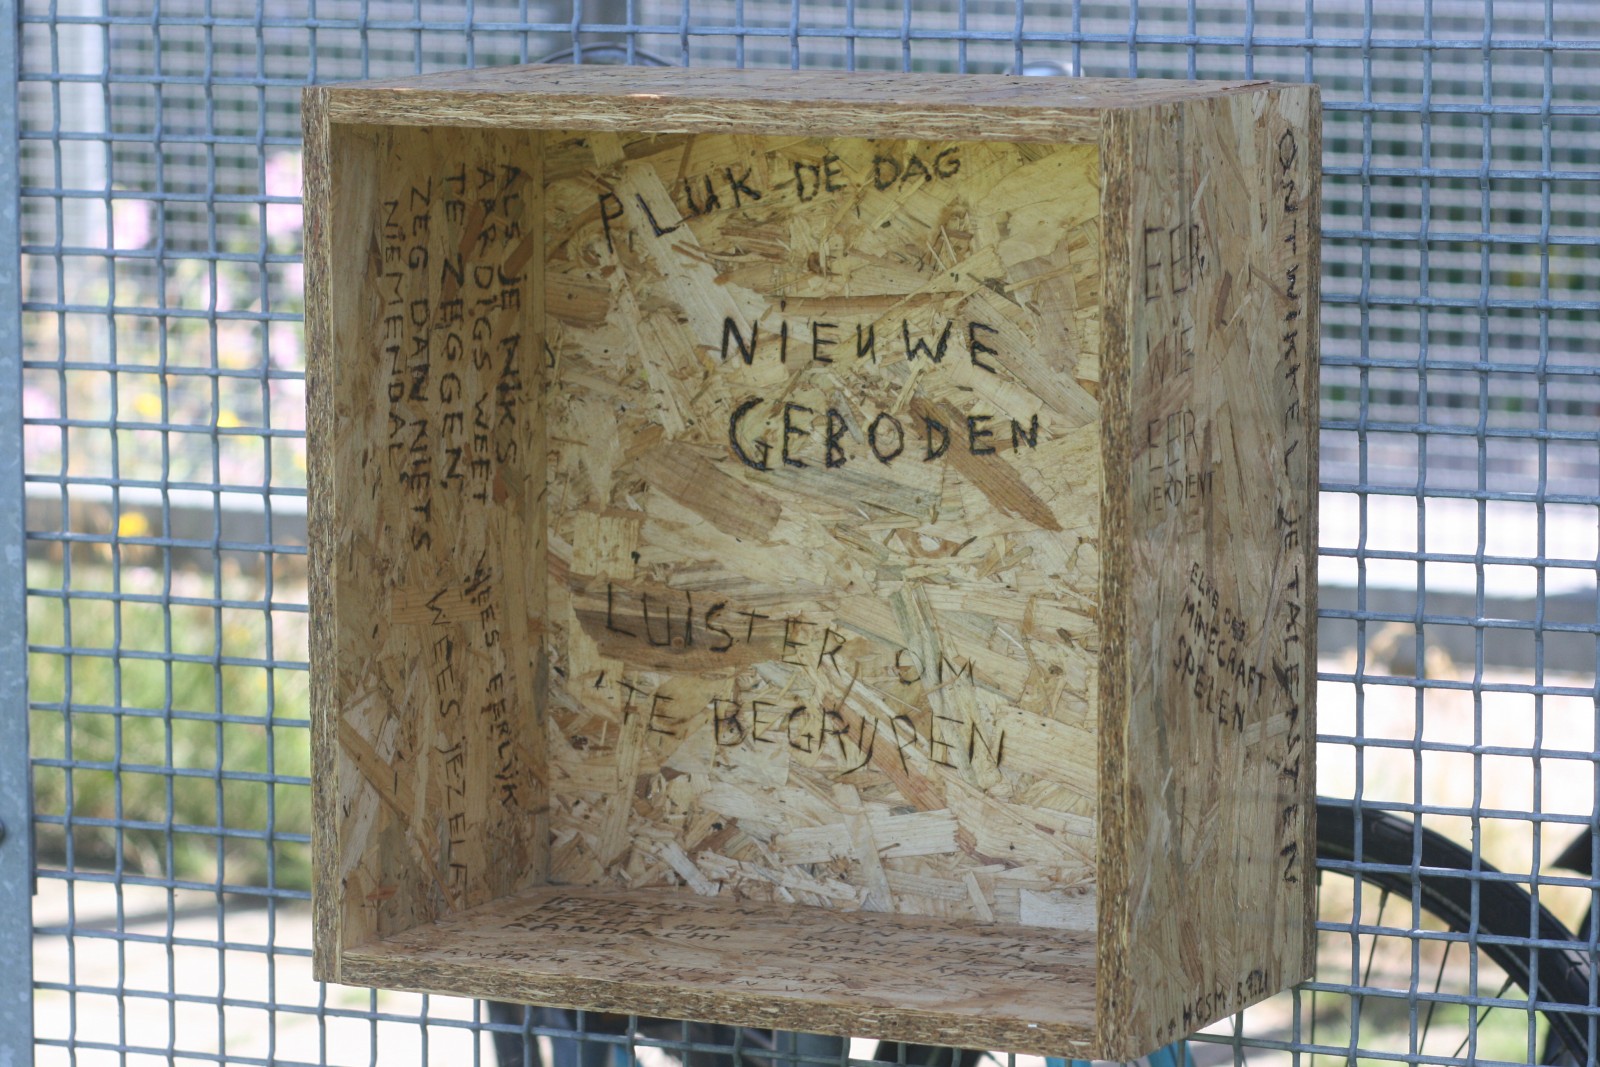 PLUK DE DAG
NIEUWE
GEBODEN
LUISTER OM
TE BEGRIJPEN
ALS JE NIKS
AARDIGS WEET
TE ZEGGEN,
ZEG DAN NIETS
NIEMENDAL
WEES EERLIJK
WEES JEZELF
EER
WIE
EER
VERDIENT
ONTWIKKEL JE TALENTEN
ELKE DAG
MINECRAFT
SPELEN